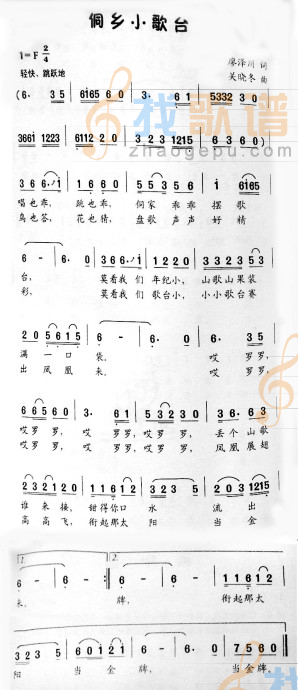 侗乡小歌台
1=F 2/4
廖泽川 词
轻快、跳跃地
吴晓冬 曲
(6· 35 | 6165 60 | 3· 61 | 5332 30 |
3661 1223 | 6112 20 | 3023 1215 | 6 60) |
找歌谱
zhaogepu.com
3 6 6· i | 1 6 6 0 | 5 5 3 5 6 | i 6165 |
唱也乖, 跳也乖, 侗家 乖乖 摆歌
鸟也答, 花也情, 盘歌 声声 好精
6 - | 6· 0 | 3 6 6· i | 3 2 3 0 |
台, 莫看我们 年纪小, 山歌山果装
彩, 莫看我们 歌台小, 小小歌台赛
2 2 0 5 6 1 5 | 6 - | 6· 0 | 6· 35 |
满一口袋, 哎 罗罗,
出凤凰来, 哎 罗罗,
6 6 5 6 0 | 3· 61 | 5 3 2 3 0 | 3 6· 6 3 |
哎罗罗, 哎 罗罗, 哎罗罗, 丢个山歌
哎罗罗, 哎 罗罗, 哎罗罗, 凤凰展翅
2 3 2 1 2 0 | 1 1 6 1 2 | 3 2 3 0 | 2 0 3 1215 |
谁来接, 甜得你口 水 流出
高高飞, 衔起那太 阳 当金
1. 2.
6 - | 6· 0 :| 6 - | 6· 0 | 1 1 6 1 2 |
来, 牌, 衔起那太
3 2 3 0 | 6 0 1 2 1 | 6 - | 6 0 | 7 5 6 0 ‖
阳 当金牌, 当金牌。